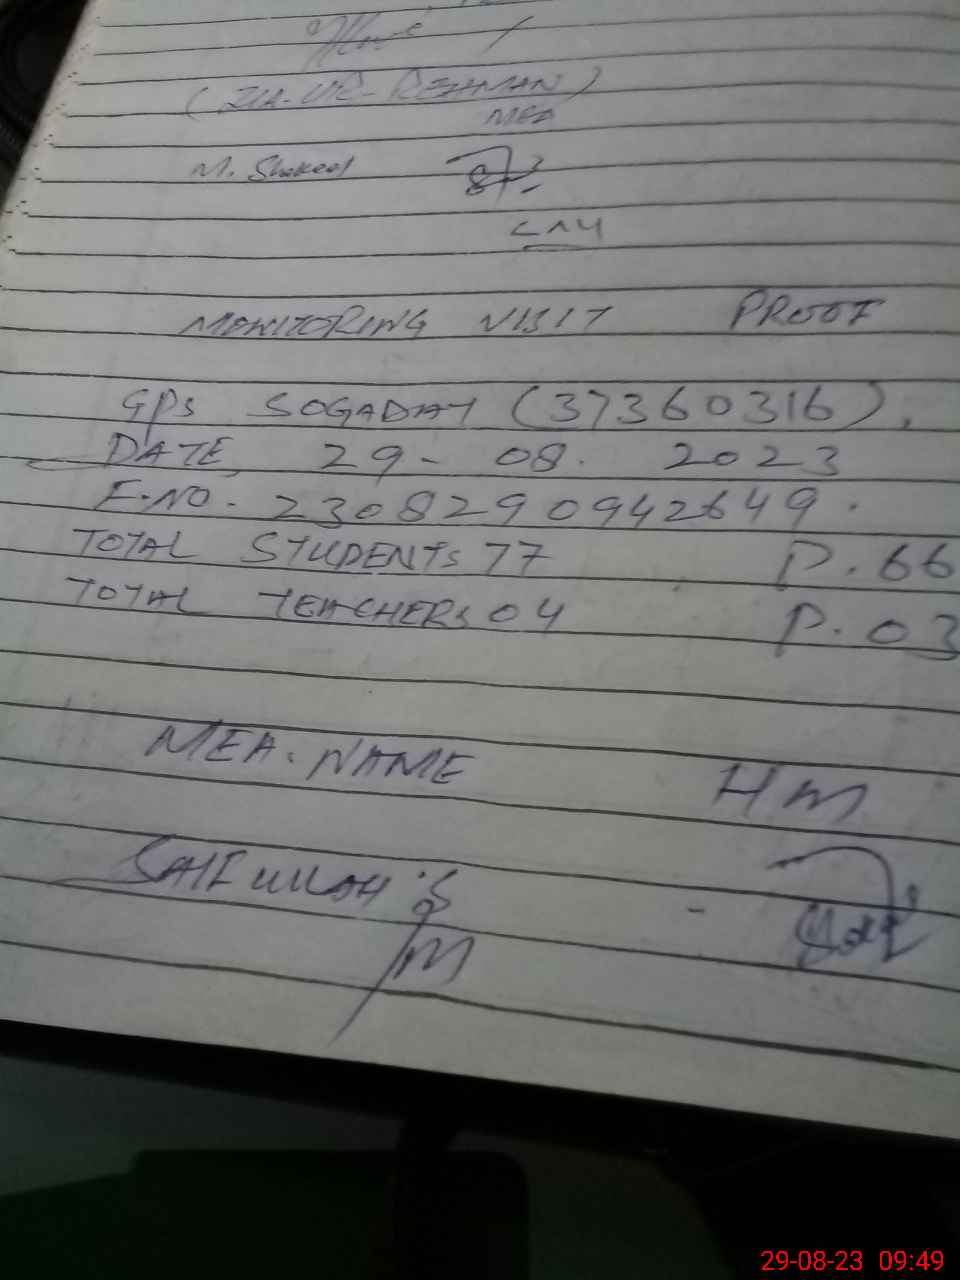 (ZIA-UR-REHMAN)
MEA
M. Shakeel
MONITORING VISIT PROOF
GPS SOGADAY (37360316).
DATE 29-08.2023
E.NO. 2308290942649.
TOTAL STUDENTS 77 P.66
TOTAL TEACHERS 04 P.03
MEA.NAME HM
SAIFULLAH
29-08-23 09:49